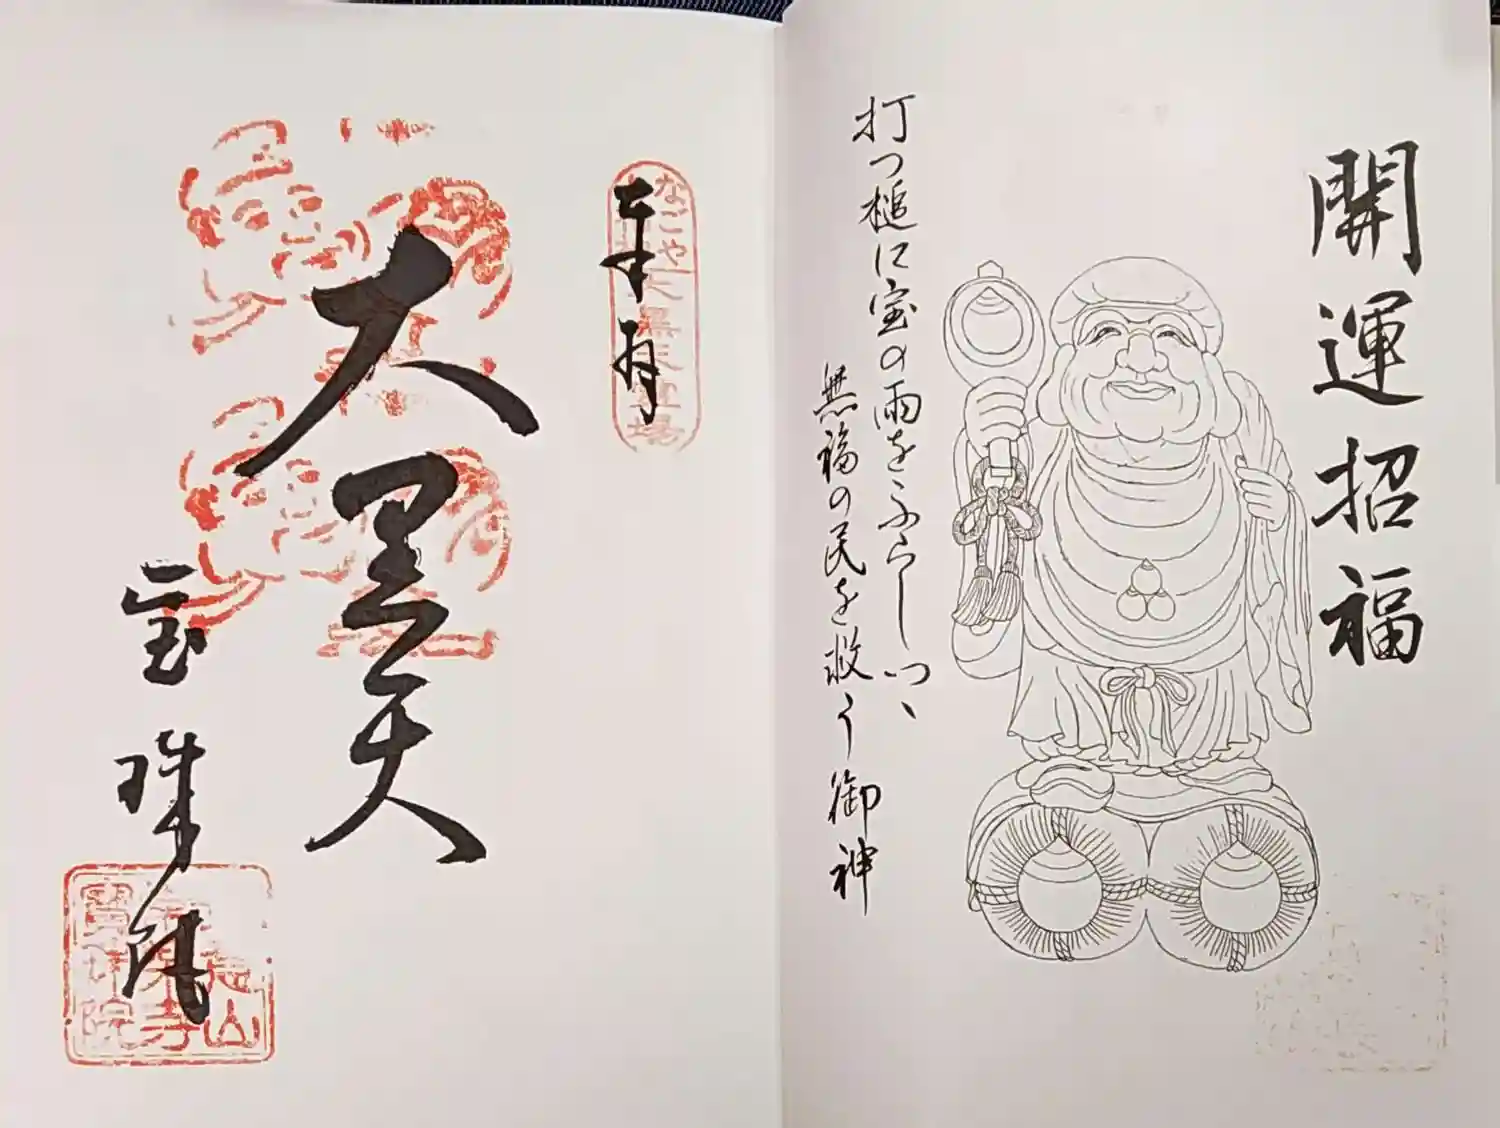 開運招福
打つ槌に宝の雨をふらしつゝ
無福の民を救う御神
奉拝
なごや大黒天霊場
大黒天
宝珠院
寶珠院